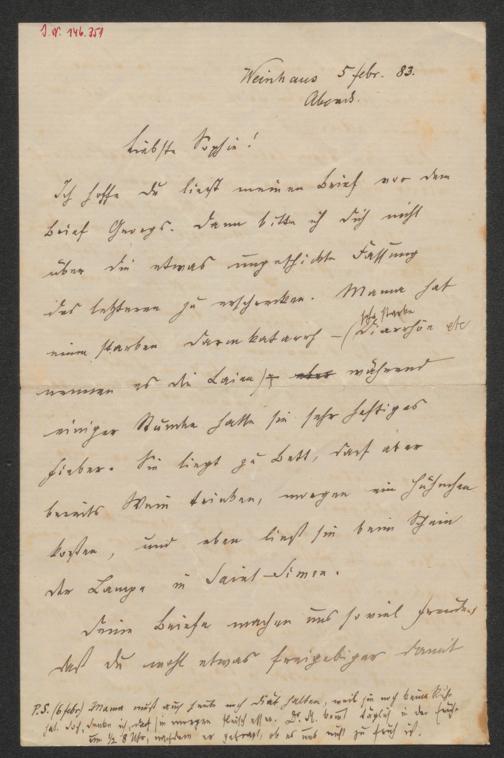 J. N. 146.351
Weinhaus 5 febr. 83.
Abends.
Liebste Sophie!
Ich hoffe du liest meinen Brief vor dem
Brief Georgs. Dann bitte ich dich nicht
über die etwas ungeschickte Fassung
des letzteren zu erschrecken. Mama hat
einen starken Darmkatarrh – (sehr starke Diarrhöe etc
nennen es die Laien) aber während
einiger Stunden hatte sie sehr heftiges
Fieber. Sie liegt zu Bett, darf aber
bereits Wein trinken, morgen ein Hühnchen
kosten, und eben liest sie beim Schein
der Lampe in Saint-Simon.
Deine Briefe machen uns so viel Freude,
daß du wohl etwas freigebiger damit
P.S. (6 febr) Mama muß auch heute noch Diät halten, weil sie noch keine
hat. Doch, denke ich, daß sie morgen Fleisch essen. Dr. kommt täglich in der Früh
um ½ 8 Uhr, nachdem er gefragt, ob es uns nicht zu früh ist.